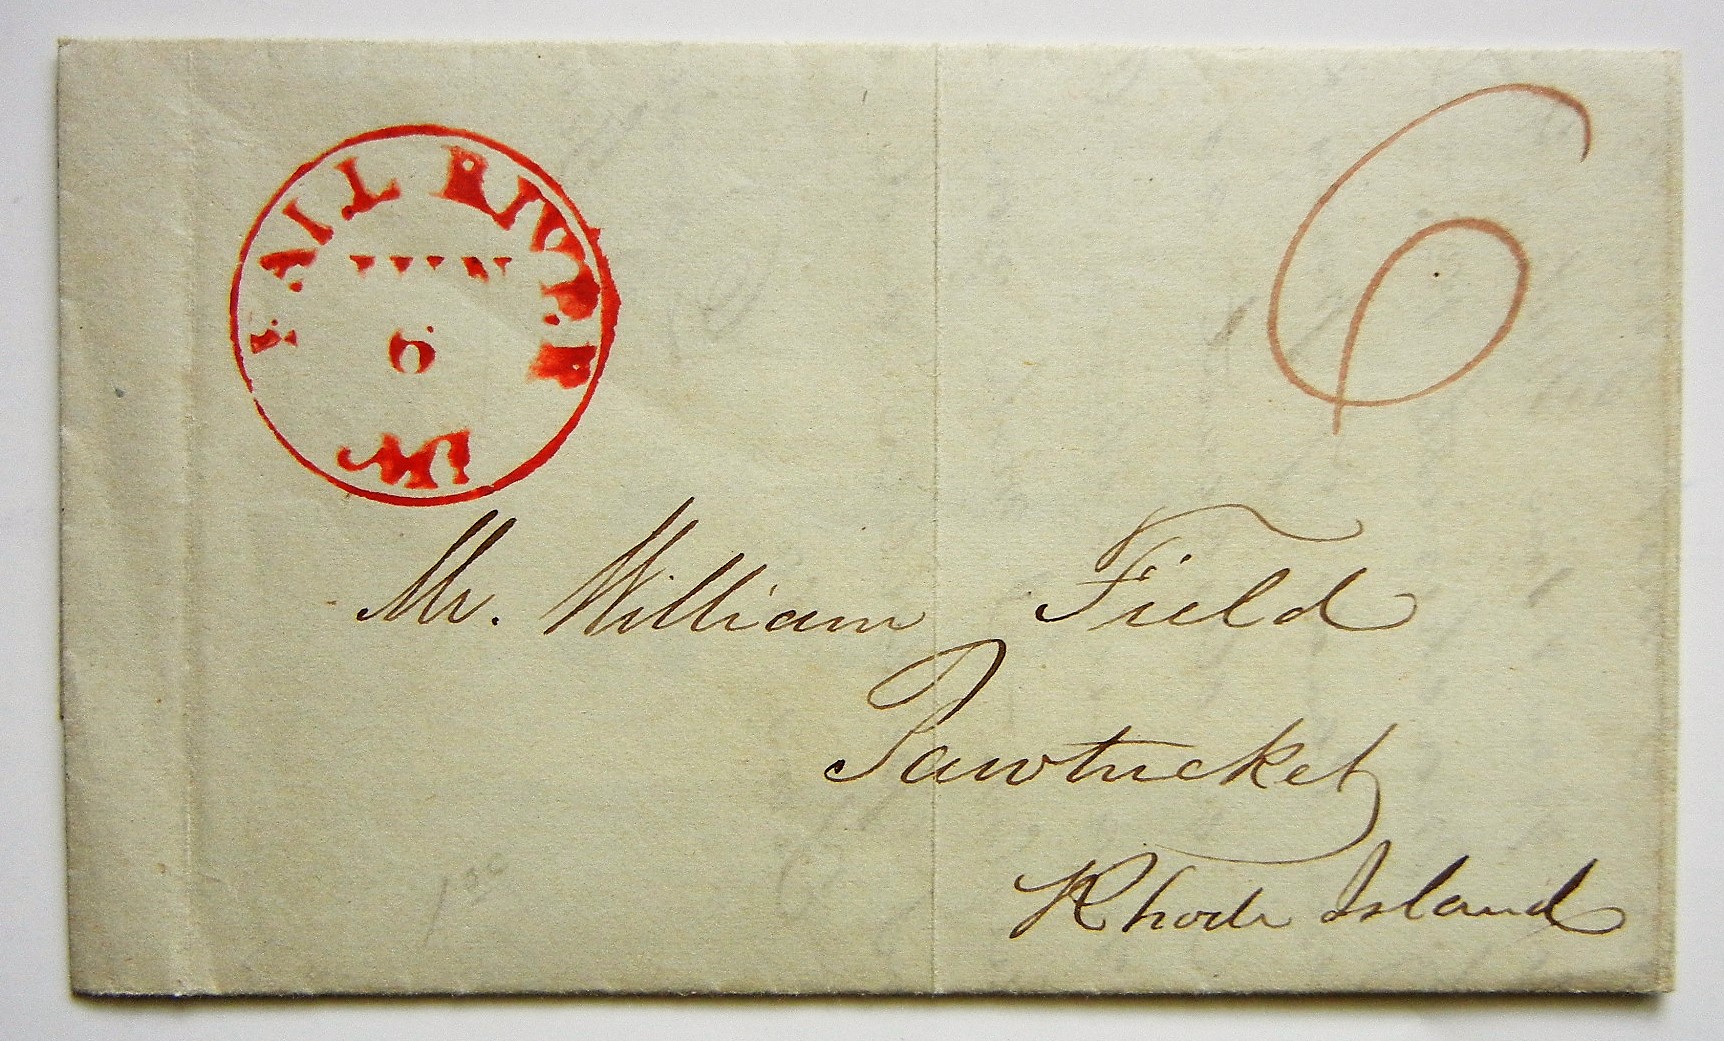 FALL RIVER
JUN
6
Ms
6
Mr. William Field
Pawtucket
Rhode Island